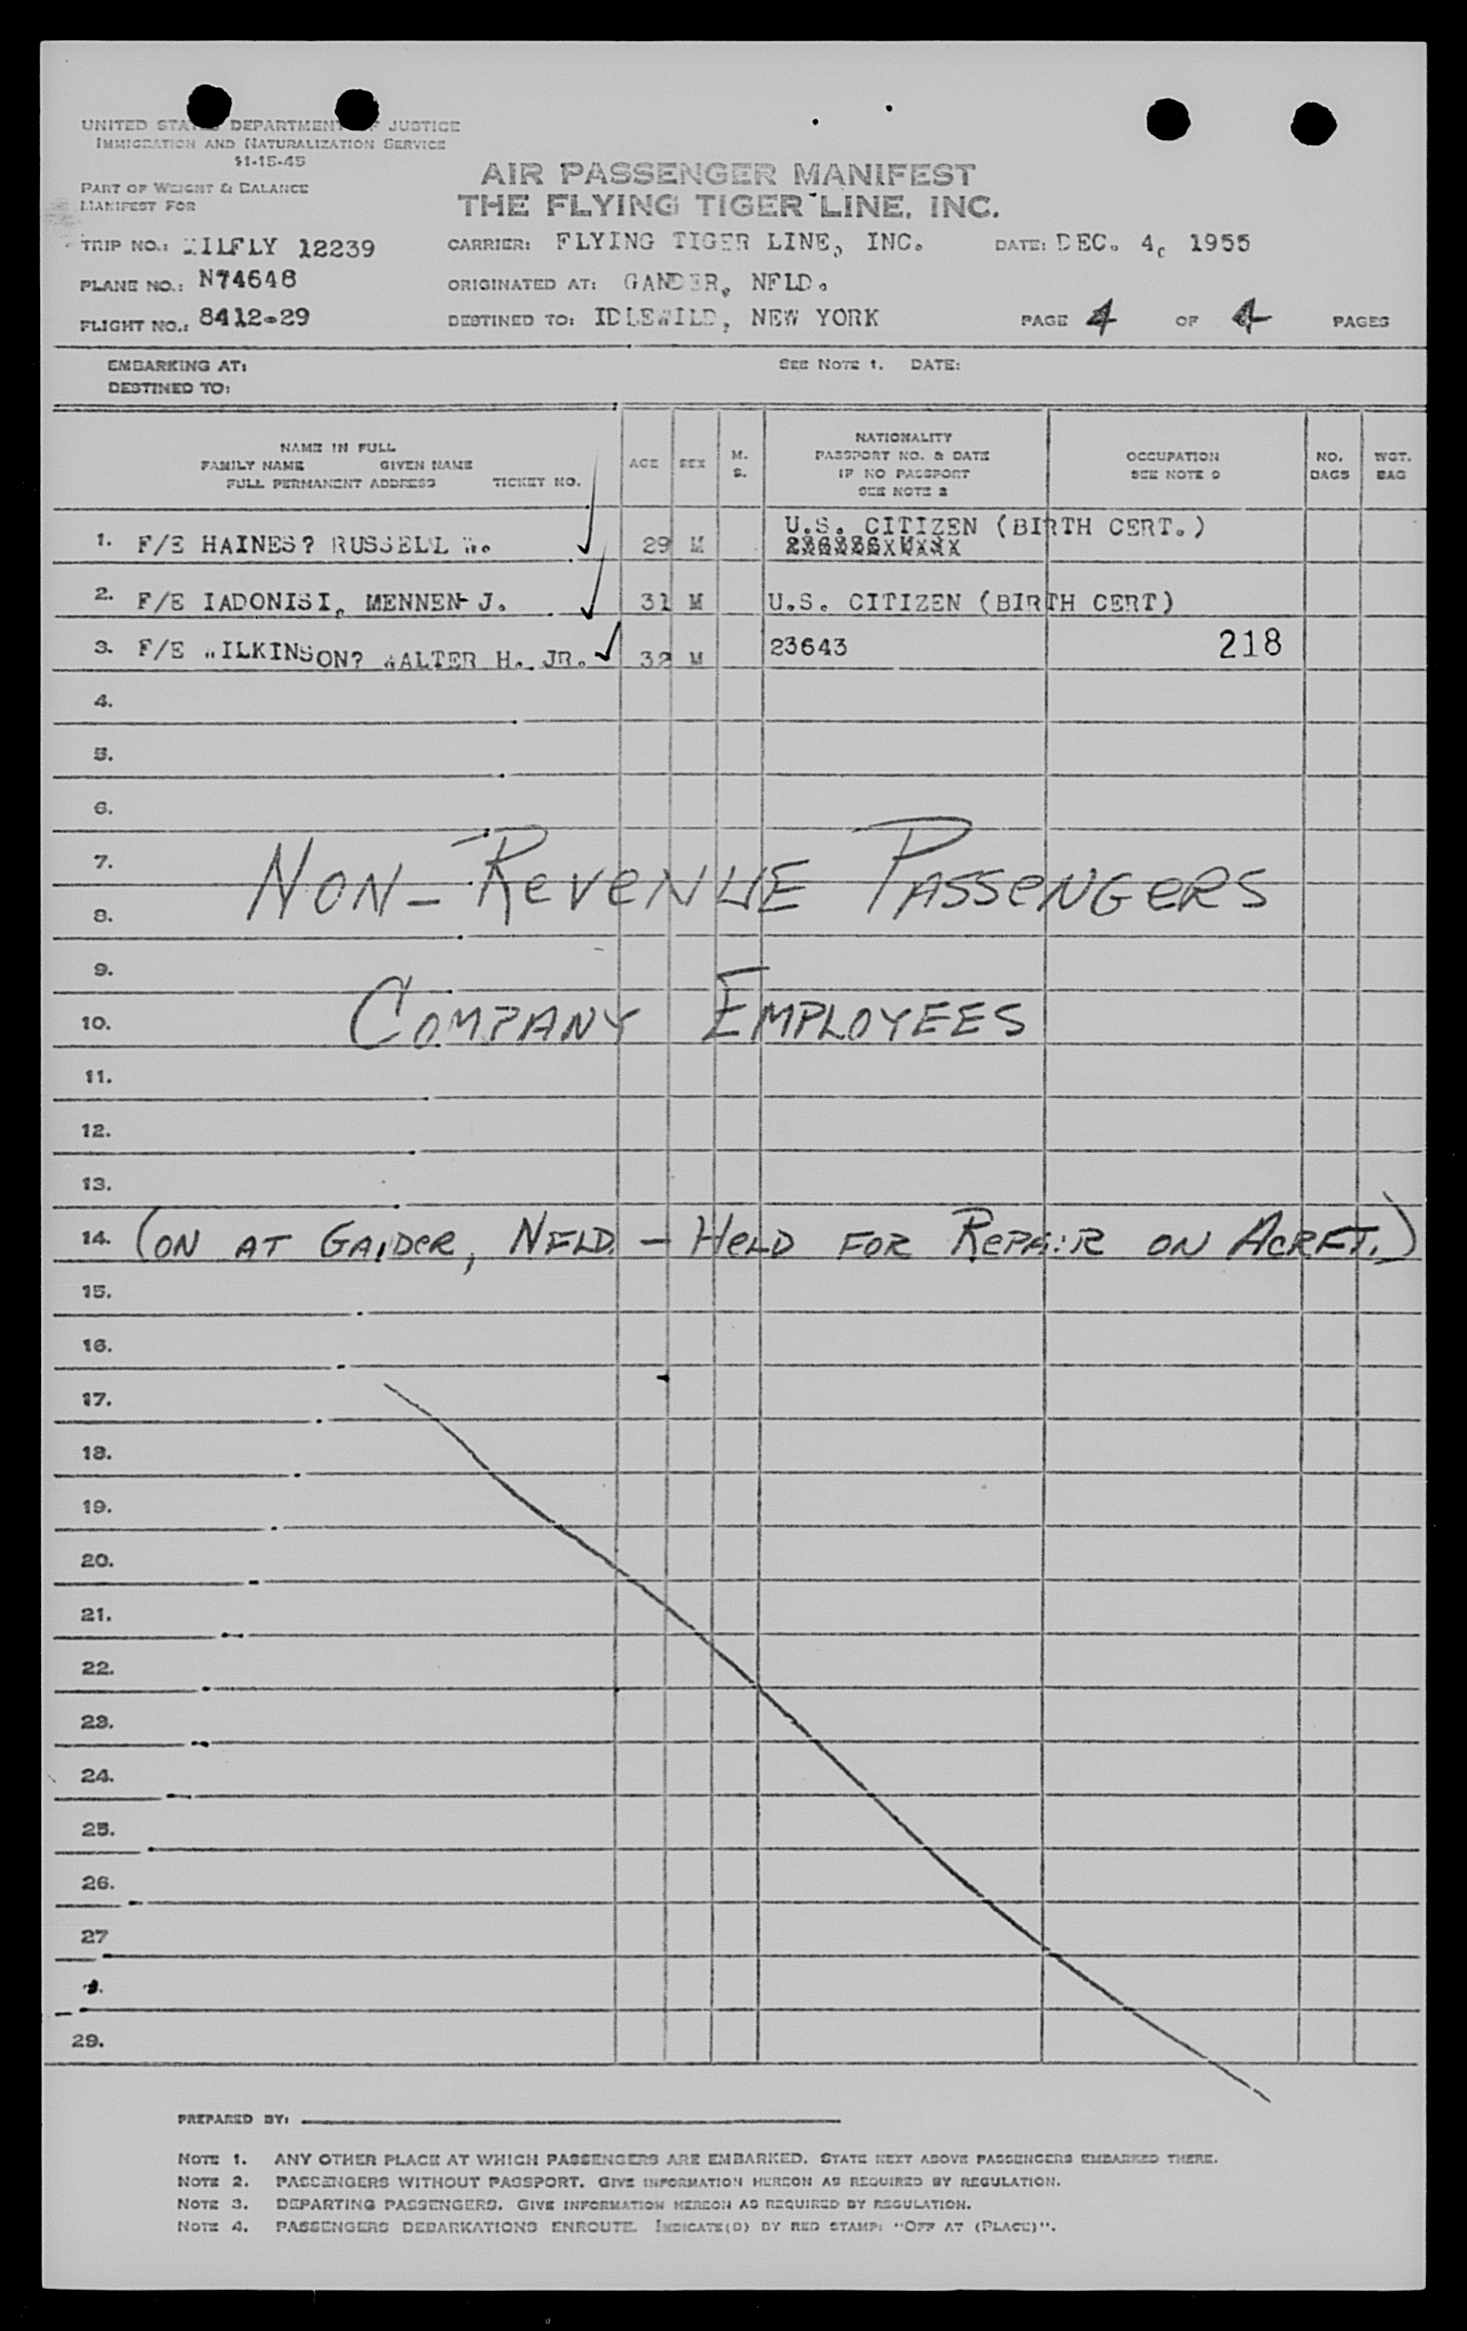 UNITED STATES DEPARTMENT OF JUSTICE
IMMIGRATION AND NATURALIZATION SERVICE
11-15-45
PART OF WEIGHT & BALANCE
MANIFEST FOR
AIR PASSENGER MANIFEST
THE FLYING TIGER LINE, INC.
TRIP NO.: MILFLY 12239 CARRIER: FLYING TIGER LINE, INC. DATE: DEC. 4, 1955
PLANE NO.: N74648 ORIGINATED AT: GANDER, NFLD.
FLIGHT NO.: 8412-29 DESTINED TO: IDLEWILD, NEW YORK PAGE 4 OF 4 PAGES
EMBARKING AT: SEE NOTE 1. DATE:
DESTINED TO:
NAME IN FULL
FAMILY NAME GIVEN NAME
FULL PERMANENT ADDRESS TICKET NO.
AGE SEX M. S.
NATIONALITY
PASSPORT NO. & DATE
IF NO PASSPORT
SEE NOTE 2
OCCUPATION
SEE NOTE 3
NO. BAGS
WGT. BAG
1. F/E HAINES? RUSSELL W. 29 M U.S. CITIZEN (BIRTH CERT.)
2. F/E IADONISI, MENNEN J. 31 M U.S. CITIZEN (BIRTH CERT)
3. F/E WILKINSON? WALTER H. JR. 32 M 23643 218
4.
5.
6.
7.
NON-REVENUE PASSENGERS
8.
9.
10. COMPANY EMPLOYEES
11.
12.
13.
14. (ON AT GANDER, NFLD. - HELD FOR REPAIR ON ACRFT.)
15.
16.
17.
18.
19.
20.
21.
22.
23.
24.
25.
26.
27
29.
PREPARED BY:
NOTE 1. ANY OTHER PLACE AT WHICH PASSENGERS ARE EMBARKED. STATE NEXT ABOVE PASSENGERS EMBARKED THERE.
NOTE 2. PASSENGERS WITHOUT PASSPORT. GIVE INFORMATION HEREON AS REQUIRED BY REGULATION.
NOTE 3. DEPARTING PASSENGERS. GIVE INFORMATION HEREON AS REQUIRED BY REGULATION.
NOTE 4. PASSENGERS DEBARKATIONS ENROUTE. INDICATE(D) BY RED STAMP: "OFF AT (PLACE)".